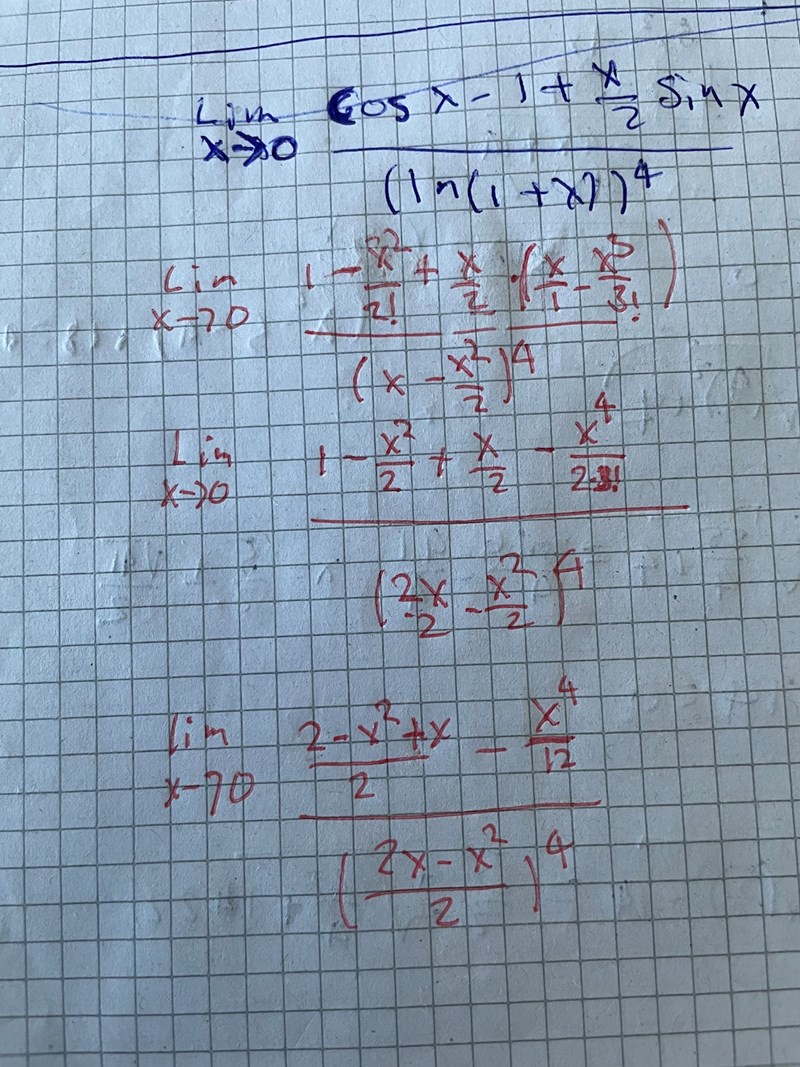 Lim x→0 (cos x - 1 + x/2 sin x) / (ln(1+x))^4
Lim x→0 (1 - x²/2! + x/2 · (x/1 - x³/3!)) / (x - x²/2)^4
Lim x→0 (1 - x²/2 + x/2 - x⁴/(2·3!)) / (2x/2 - x²/2)^4
lim x→0 ((2 - x² + x)/2 - x⁴/12) / ((2x - x²)/2)^4